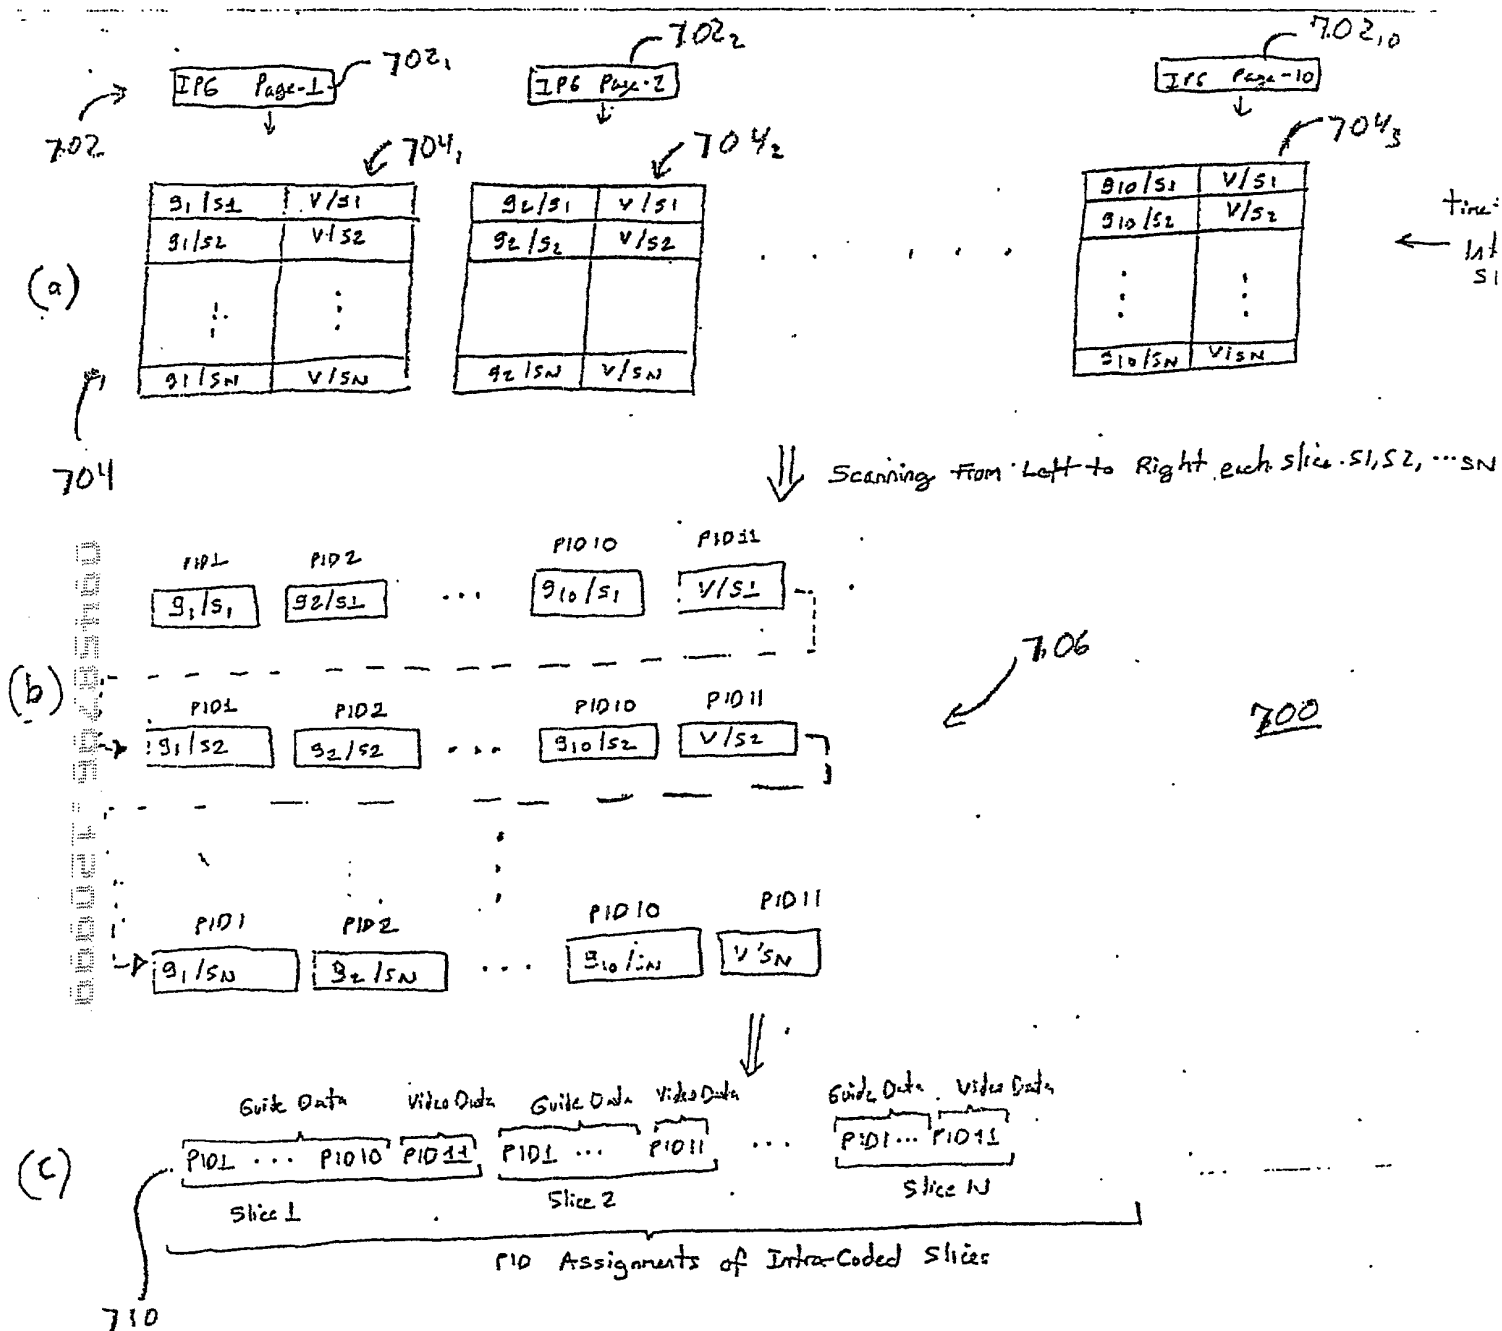 702₁ 702₂ 702₁₀
IPG Page-1 IPG Page-2 IPG Page-10
702
704₁ 704₂ 704₃
g1/s1 V/s1 g2/s1 V/s1 g10/s1 V/s1
g1/s2 V/s2 g2/s2 V/s2 g10/s2 V/s2
(a)
g1/sN V/sN g2/sN V/sN g10/sN V/sN
704
Scanning From Left to Right each slice s1, s2, ... sN
PID1 PID2 PID10 PID11
g1/s1 g2/s1 ... g10/s1 V/s1
706
(b)
PID1 PID2 PID10 PID11
g1/s2 g2/s2 ... g10/s2 V/s2
700
PID1 PID2 PID10 PID11
g1/sN g2/sN ... g10/sN V/sN
Guide Data Video Data Guide Data Video Data Guide Data Video Data
(c)
PID1 ... PID10 PID11 PID1 ... PID11 ... PID1... PID11
Slice 1 Slice 2 Slice N
PID Assignments of Intra-Coded Slices
710